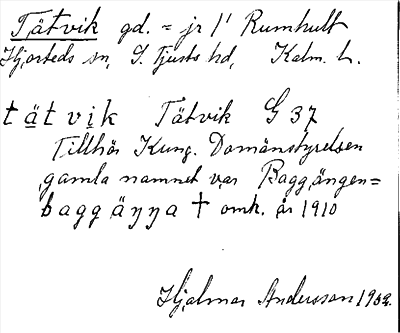 Tätvik gd. = jr 1/1 Rumhult
Hjorteds sn, S. Tjusts hd, Kalm. l.
tätvik Tätvik G 37
Tillhör Kung. Domänstyrelsen
gamla namnet var Baggängen=
baggäŋŋa † omk. år 1910
Hjalmar Andersson 1932.